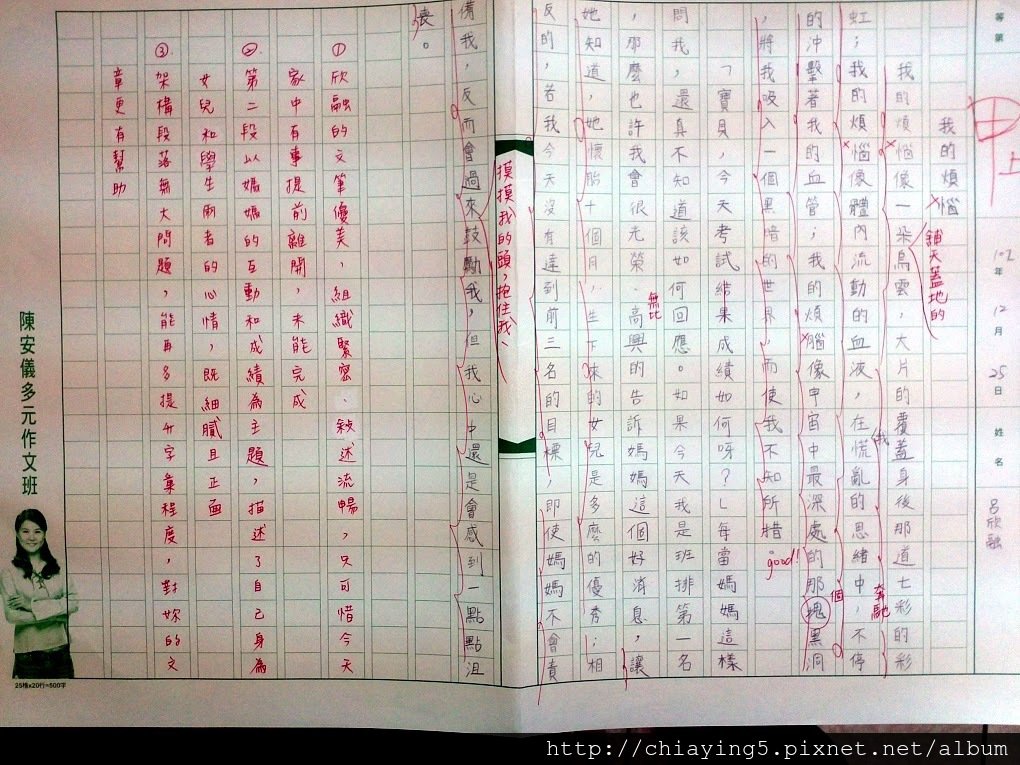 等第 甲上 102年12月25日 姓名 呂欣融
我的煩惱
鋪天蓋地的
我的煩惱像一朵烏雲，大片的覆蓋身後那道七彩的彩
奔馳
虹；我的煩惱像體內流動的血液，在慌亂的思緒中，不停
我
個
的沖擊著我的血管；我的煩腦像宇宙中最深處的那塊黑洞
，將我吸入一個黑暗的世界，而使我不知所措
good!
「寶貝，今天考試結果成績如何呀？」每當媽媽這樣
問我，還真不知道該如何回應。如果今天我是班排第一名
無比
，那麼也許我會很光榮、高興的告訴媽媽這個好消息，讓
她知道，她懷胎十個月，生下來的女兒是多麼的優秀；相
反的，若我今天沒有達到前三名的目標，即使媽媽不會責
摸摸我的頭，抱住我、
備我，反而會過來鼓勵我，但我心中還是會感到一點點沮
喪。
①欣融的文筆優美、組織緊密、敘述流暢，只可惜今天
家中有事提前離開，未能完成
②第二段以媽媽的互動和成績為主題，描述了自己身為
女兒和學生兩者的心情，既細膩且正面
③架構段落無大問題，能再多提升字彙程度，對妳的文
章更有幫助
陳安儀多元作文班
25格x20行=500字
http://chiaying5.pixnet.net/album